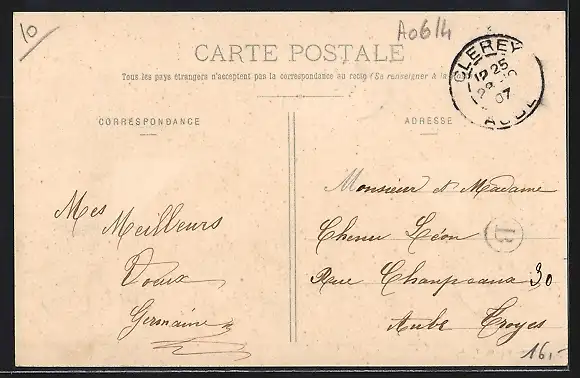 10
A0614
CARTE POSTALE
Tous les pays étrangers n'acceptent pas la correspondance au recto (Se renseigner à la
CLEREY
12 25
07
AUBE
CORRESPONDANCE
ADRESSE
Mes Meilleurs
Voeux
Germaine
Monsieur et Madame
Chenu Léon
B
Rue Champeaux 30
Aube Troyes
16.-